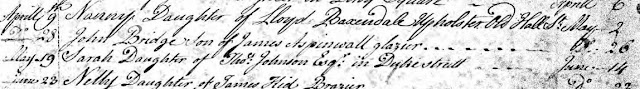 April 9th Nanny Daughter of Lloyd Baxendale Upholster Old Hall St. May 2
Do 28 John Bridge Son of James Aspinwall glazier Do 26
May 19 Sarah Daughter of Thos. Johnson Esqr. in Duke street June 14
June 23 Nelly Daughter of James Kid Brazier Do